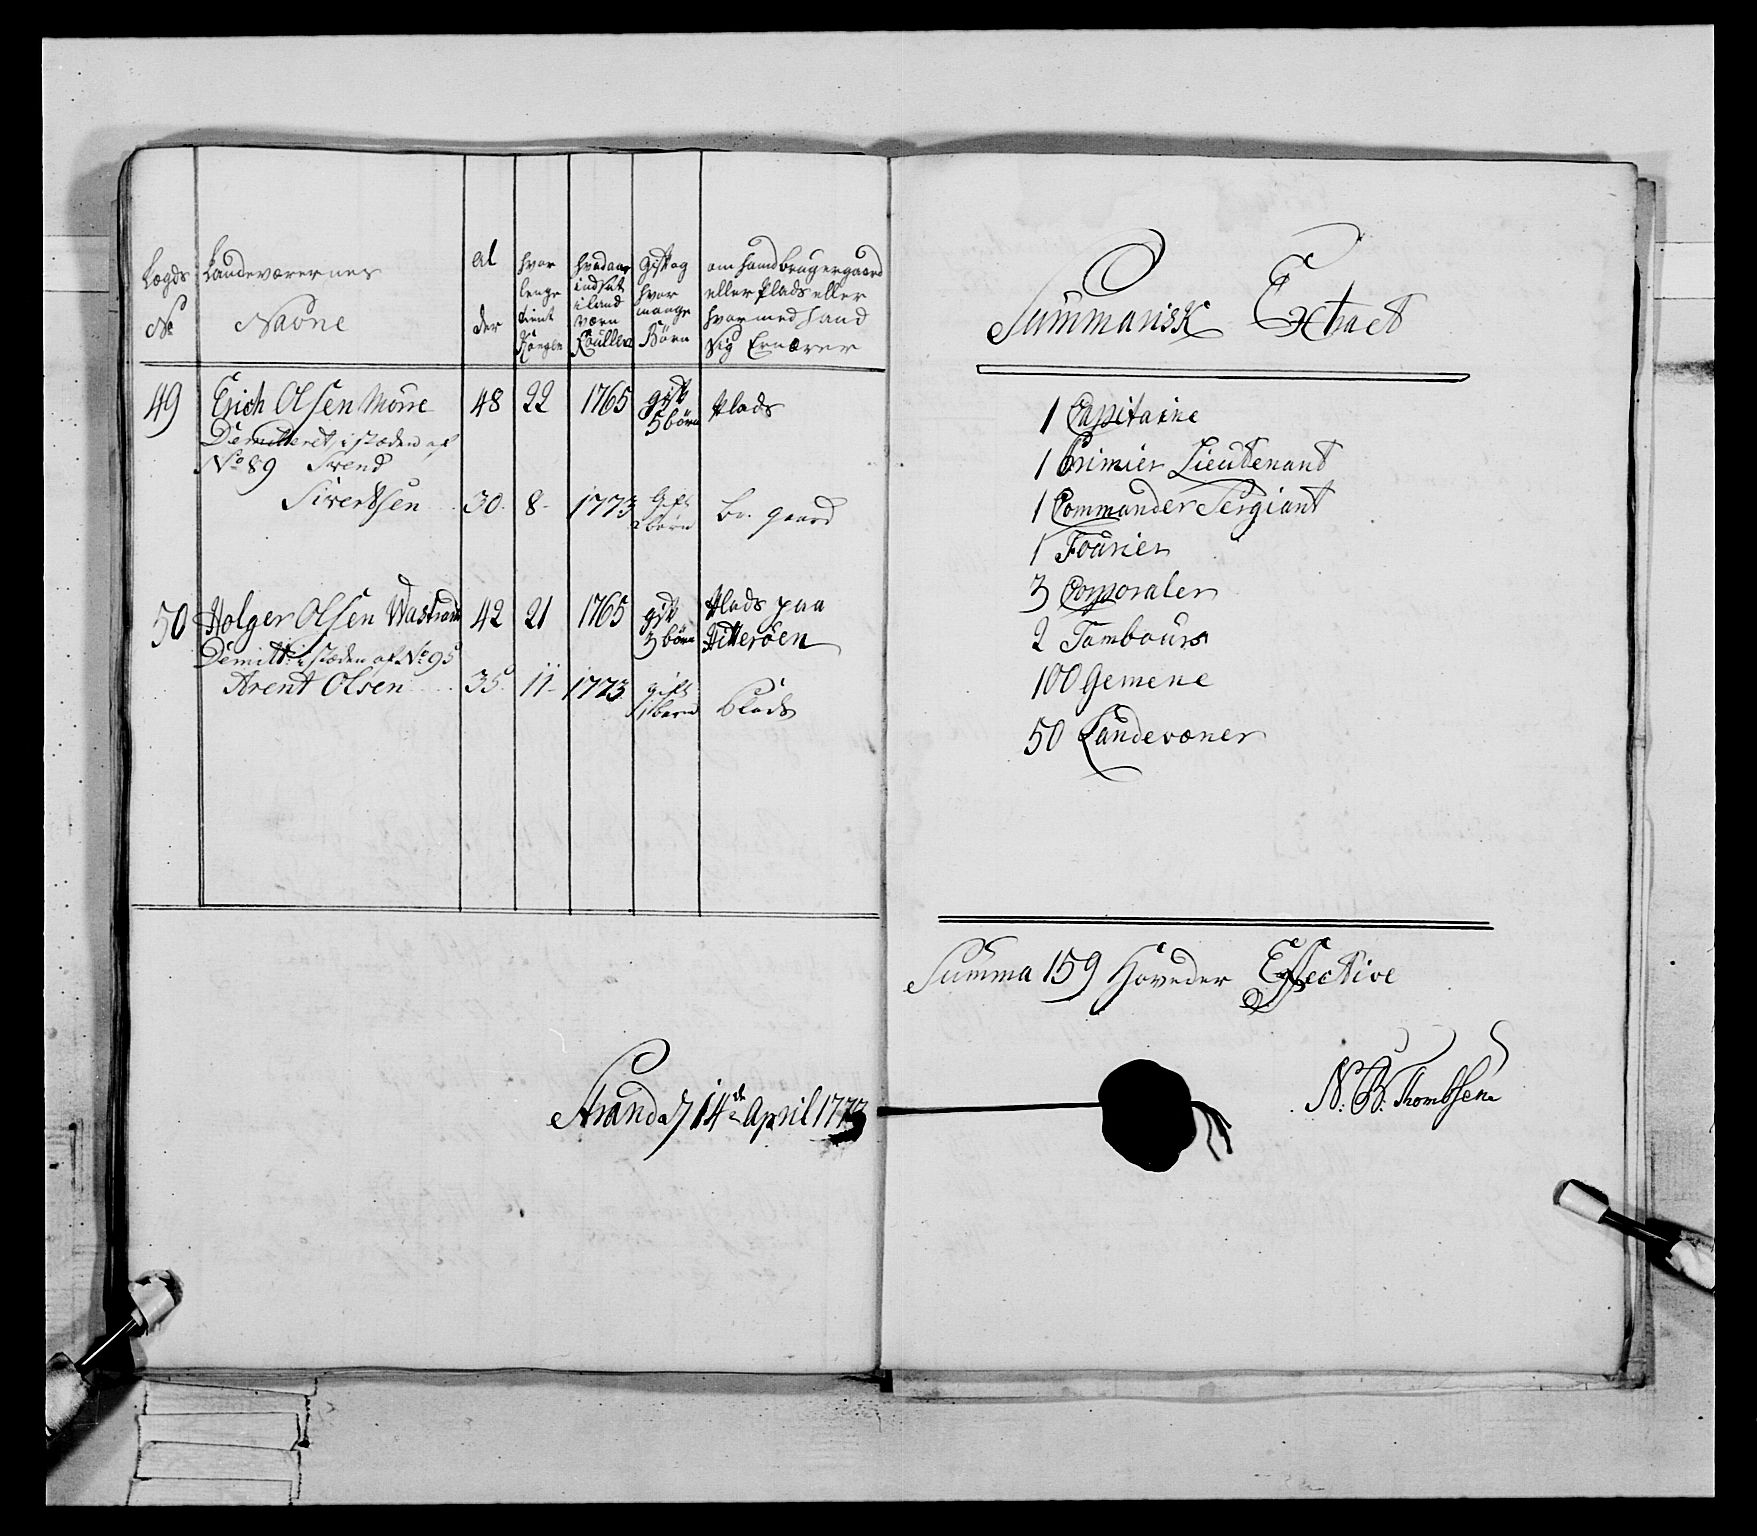 Lægds No
Landeværernes Navne
Al der
hvor lenge tient Kongen
hvad aar indsat i land værn Roullen
Gift og hvor mange Börn
om hand bruger gaard eller Plads eller hvormed hand Sig Ernærer
49 Erich OlsenМорre 48 22 1765 gift 5 börn Plads
Demitteret, i stæden af
No 89 Svend
Sivertsen 30. 8- 1773 Gift 2 börn br. gaard
50 Holger Olsen 42 21 1765 gift 3 börn Plads paa Hitterøen
Demitt: i stæden af No 95
Arent Olsen 35. 11- 1773 gift 1 barn Plads
Strand d 14de April 1773
Summarisk Extract
1 Capitaine
1 Primier Lieutenant
1 Commander Sergiant
1 Fourier
3 Corporaler
2 Tambours
100 Gemene
50 Landeværner
Summa 159 Hoveder Effective
N. B. Thombsen